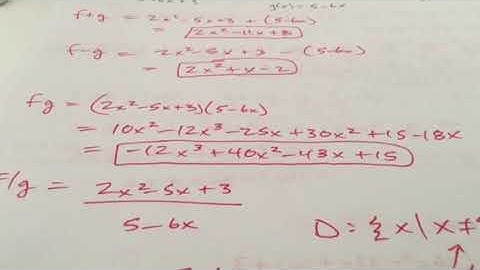 g(x) = 5-6x
f+g = 2x²-5x+3 + (5-6x)
= 2x²-11x+8
f-g = 2x²-5x+3 - (5-6x)
= 2x²+x-2
fg = (2x²-5x+3)(5-6x)
= 10x²-12x³-25x+30x²+15-18x
= -12x³+40x²-43x+15
F/g = 2x²-5x+3
5-6x
D = {x|x≠